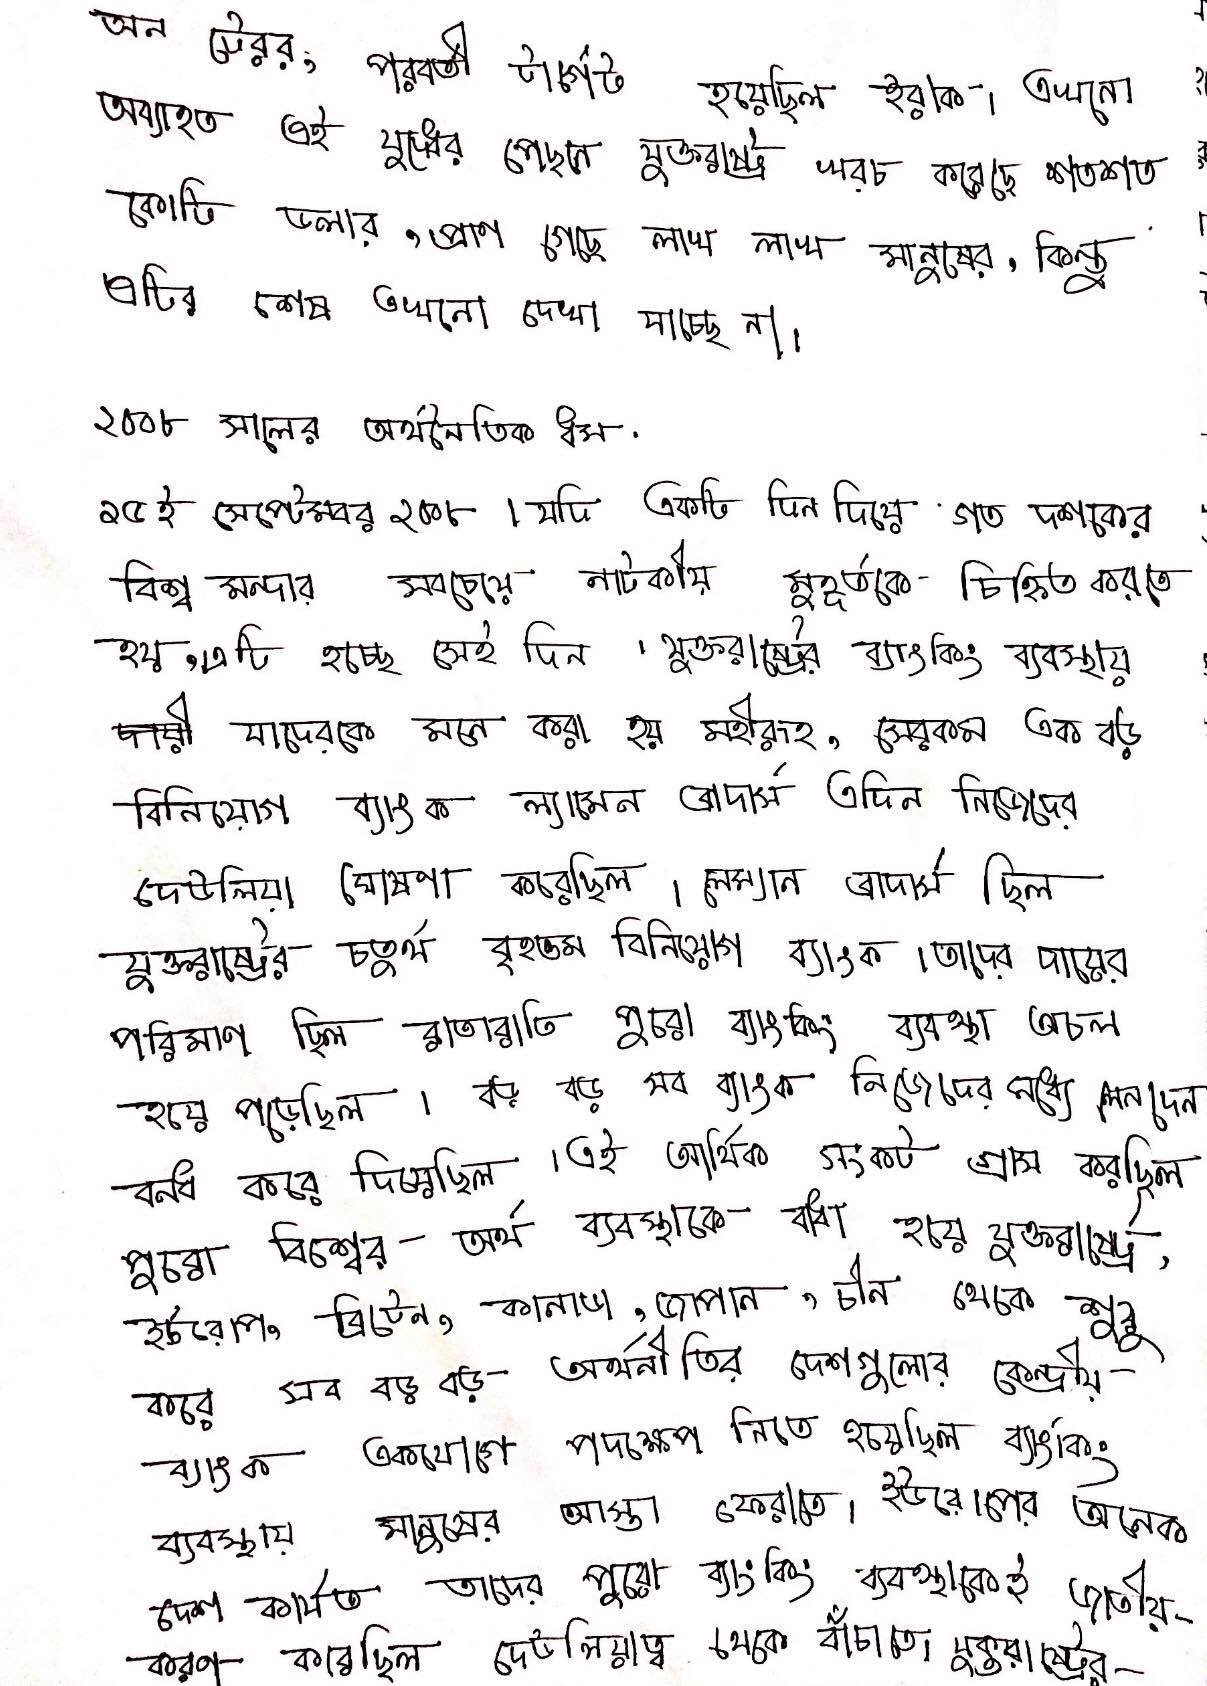 অন টেরর, পরবর্তী টার্গেট হয়েছিল ইরাক। এখনো
অব্যাহত এই যুদ্ধের পেছনে যুক্তরাষ্ট্রে খরচ করেছে শতশত
কোটি ডলার, প্রাণ গেছে লাখ লাখ মানুষের, কিন্তু
এটির শেষ এখনো দেখা যাচ্ছে না।
২০০৮ সালের অর্থনৈতিক ধ্বস.
১৫ই সেপ্টেম্বর ২০০৮। যদি একটি দিন দিয়ে গত দশকের
বিশ্ব মন্দার সবচেয়ে নাটকীয় মুহূর্তকে চিহ্নিত করতে
হয়, এটি হচ্ছে সেই দিন। যুক্তরাষ্ট্রের ব্যাংকিং ব্যবস্থায়
যাদেরকে মনে করা হয় মহীরূহ, সেরকম এক বড়
বিনিয়োগ ব্যাংক ল্যামেন ব্রাদার্স এদিন নিজেদের
দেউলিয়া ঘোষণা করেছিল। লেম্যান ব্রাদার্স ছিল
যুক্তরাষ্ট্রের চতুর্থ বৃহত্তম বিনিয়োগ ব্যাংক। তাদের দায়ের
পরিমাণ ছিল রাতারাতি পুরো ব্যাংকিং ব্যবস্থা অচল
হয়ে পড়েছিল। বড় বড় সব ব্যাংক নিজেদের মধ্যে লেনদেন
বন্ধ করে দিয়েছিল। এই আর্থিক সংকট গ্রাস করছিল
পুরো বিশ্বের অর্থ ব্যবস্থাকে বাধা হয়ে যুক্তরাষ্ট্রে,
ইউরোপ, ব্রিটেন, কানাডা, জাপান, চীন থেকে শুরু
করে সব বড় বড় অর্থনীতির দেশগুলোর কেন্দ্রীয়
ব্যাংক একযোগে পদক্ষেপ নিতে হয়েছিল ব্যাংকিং
ব্যবস্থায় মানুষের আস্তা ফেরাতে। ইউরোপের অনেক
দেশ কার্যত তাদের পুরো ব্যাংকিং ব্যবস্থাকেই জাতীয়-
করণ করেছিল দেউলিয়াত্ব থেকে বাঁচাতে। যুক্তরাষ্ট্রের